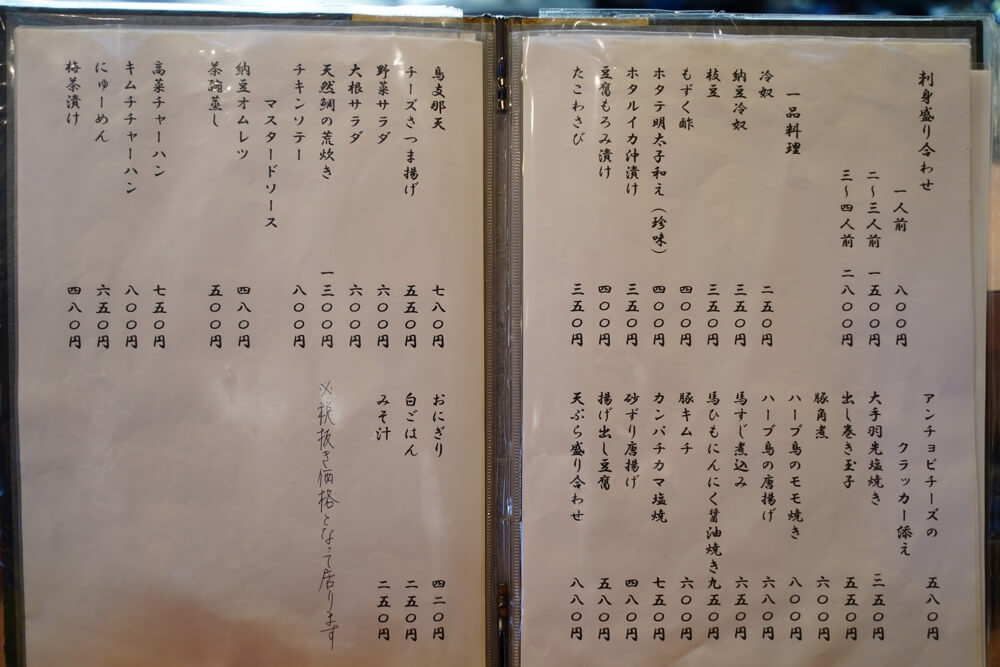 刺身盛り合わせ
一人前 八〇〇円
二～三人前 一五〇〇円
三～四人前 二八〇〇円
一品料理
冷奴 二五〇円
納豆冷奴 三五〇円
枝豆 三五〇円
もずく酢 四〇〇円
ホタテ明太子和え（珍味） 四〇〇円
ホタルイカ沖漬け 三五〇円
豆腐もろみ漬け 四〇〇円
たこわさび 三五〇円
アンチョビチーズの
クラッカー添え 五八〇円
大手羽先塩焼き 三五〇円
出し巻き玉子 五五〇円
豚角煮 六〇〇円
ハーブ鳥のモモ焼き 八〇〇円
ハーブ鳥の唐揚げ 六八〇円
馬すじ煮込み 六五〇円
馬ひもにんにく醤油焼き 九五〇円
豚キムチ 六〇〇円
カンパチカマ塩焼 七五〇円
砂ずり唐揚げ 四八〇円
揚げ出し豆腐 五八〇円
天ぷら盛り合わせ 八八〇円
鳥支那天 七八〇円
チーズさつま揚げ 五五〇円
野菜サラダ 六〇〇円
大根サラダ 六〇〇円
天然鯛の荒炊き 一三〇〇円
チキンソテー
マスタードソース 八〇〇円
納豆オムレツ 四八〇円
茶碗蒸し 五〇〇円
高菜チャーハン 七五〇円
キムチチャーハン 八〇〇円
にゅーめん 六五〇円
梅茶漬け 四八〇円
おにぎり 四二〇円
白ごはん 二五〇円
みそ汁 二五〇円
※税抜き価格となって居ります